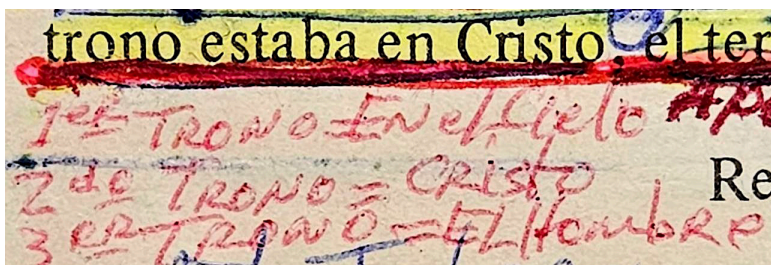 trono estaba en Cristo, el ter
1er TRONO = EN el Cielo
2do TRONO = CRISTO
Re
3er TRONO = EL Hombre